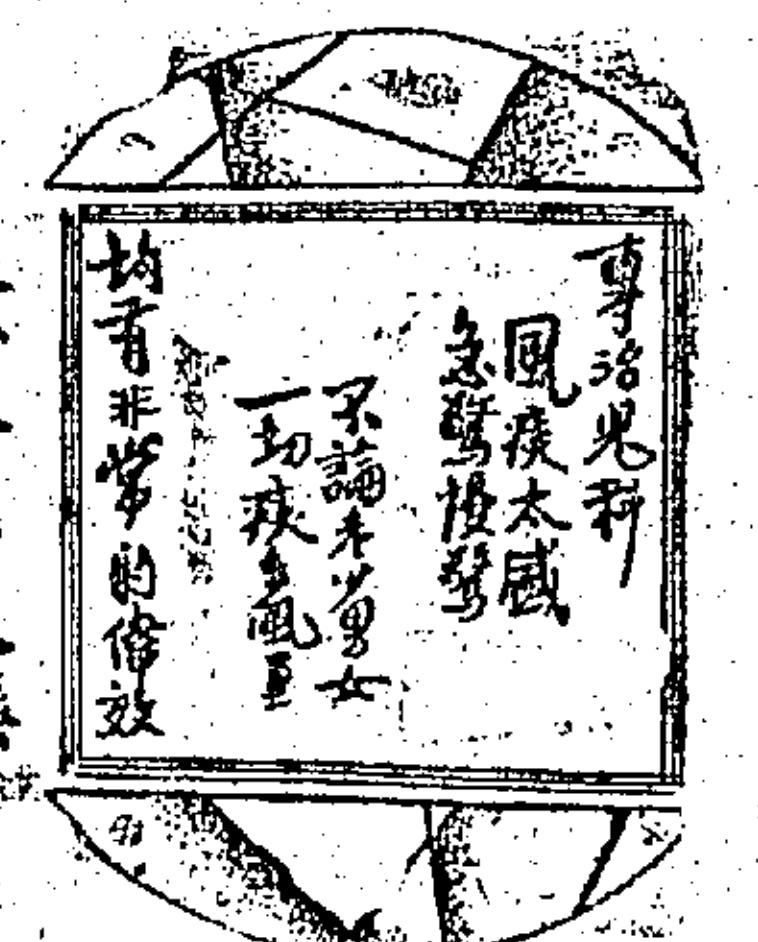 專治兒科
風痰太盛
急驚慢驚
不論老少男女
一切痰多氣重
均有非常的偹效